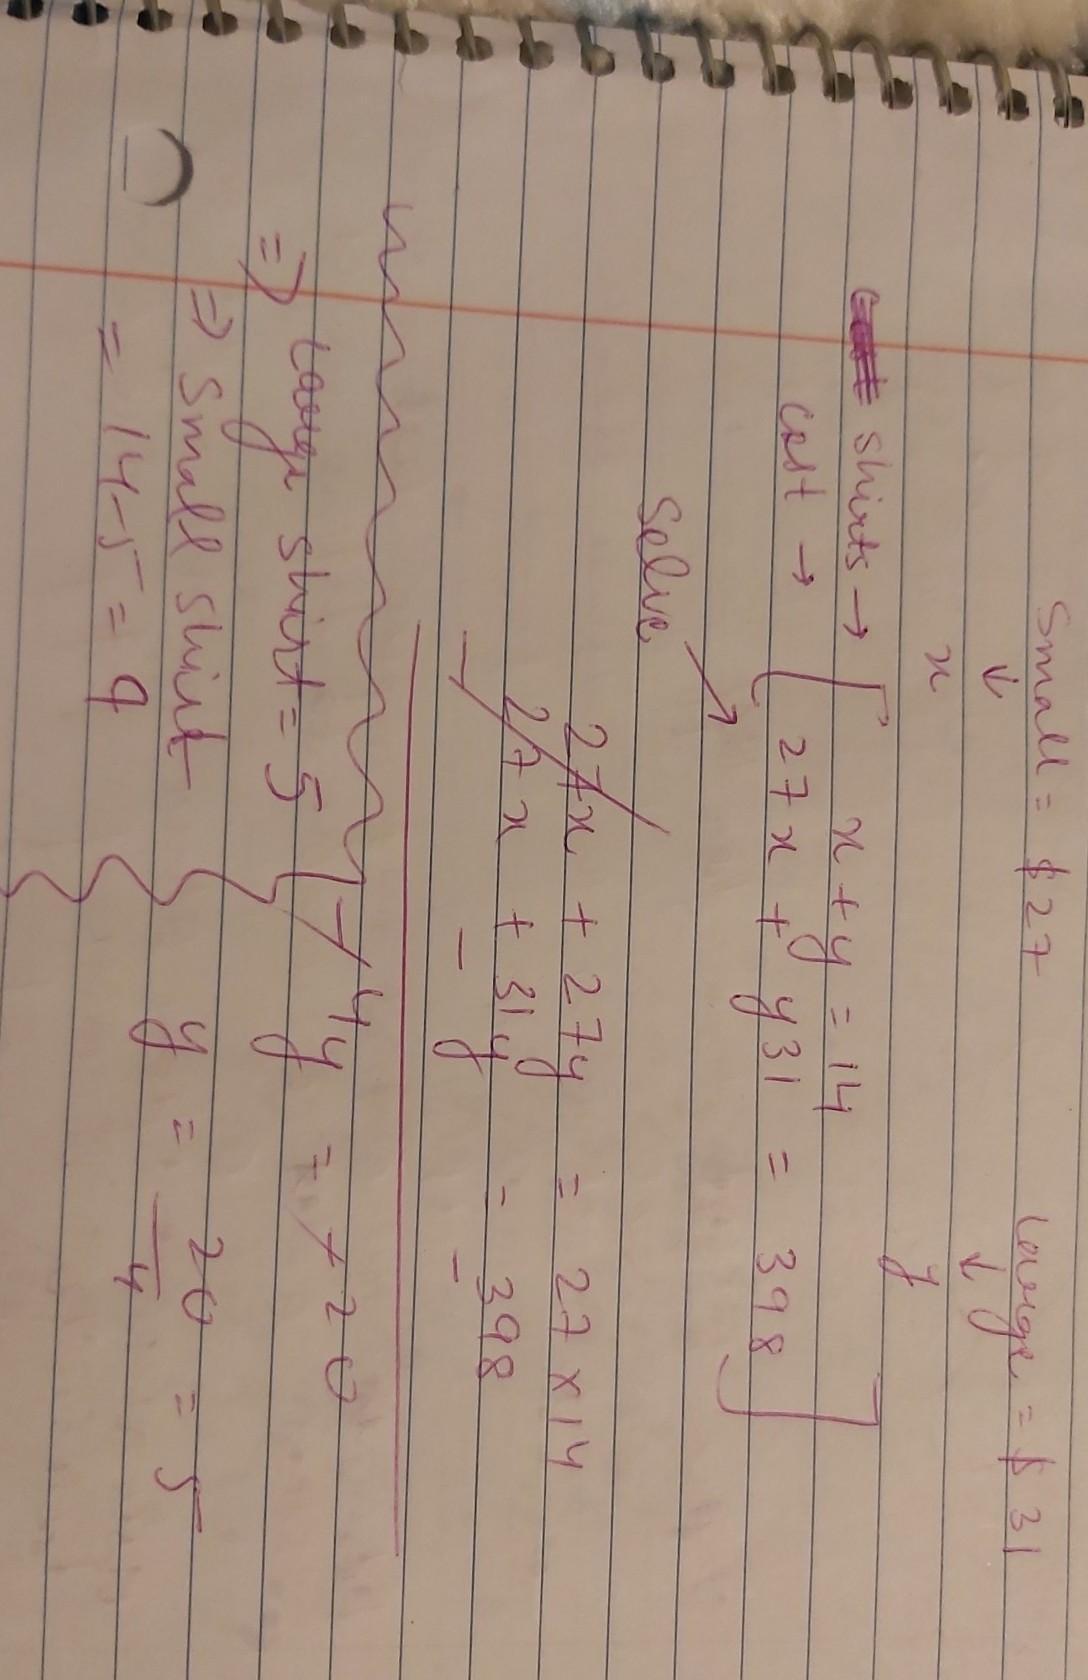 Small = $27 large = $31
↓ ↓
x y
shirts → x + y = 14
cost → 27x + y31 = 398
Solve
27x + 27y = 27 x 14
27x + 31y - 398
- - -
- 4y = - 20
y = 20/4 = 5
=> large shirt = 5
=> Small shirt
= 14-5 = 9